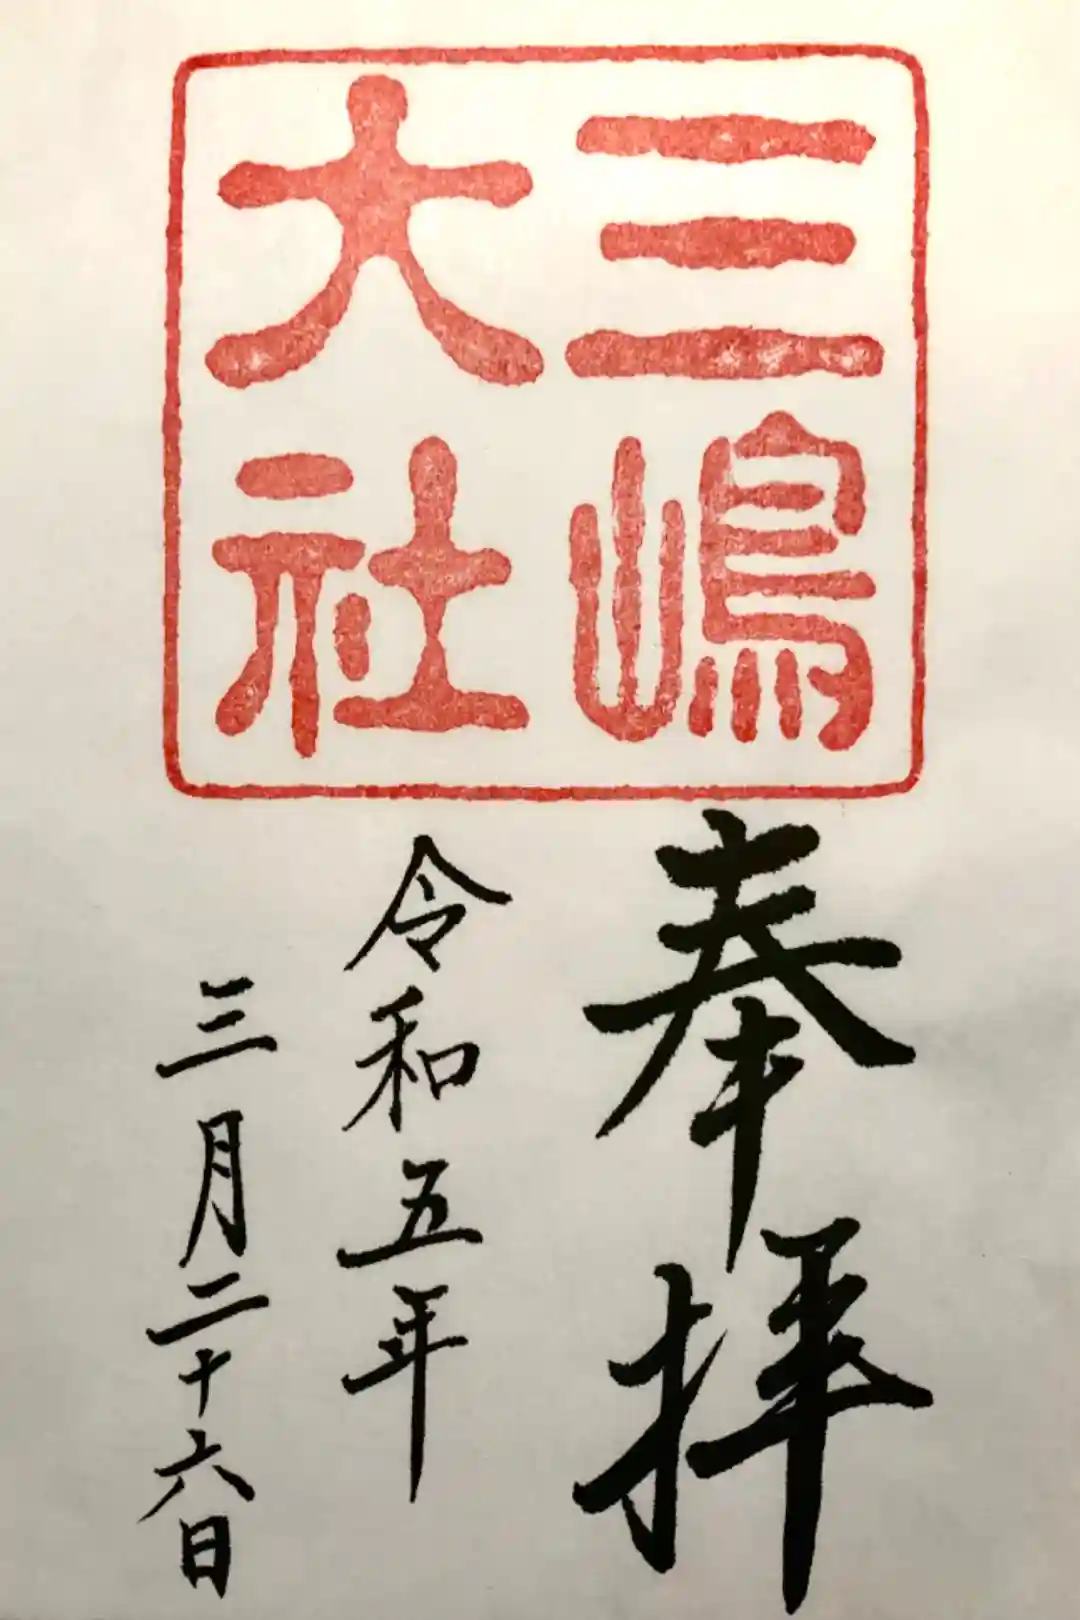 三嶋
大社
奉拝
令和五年
三月二十六日